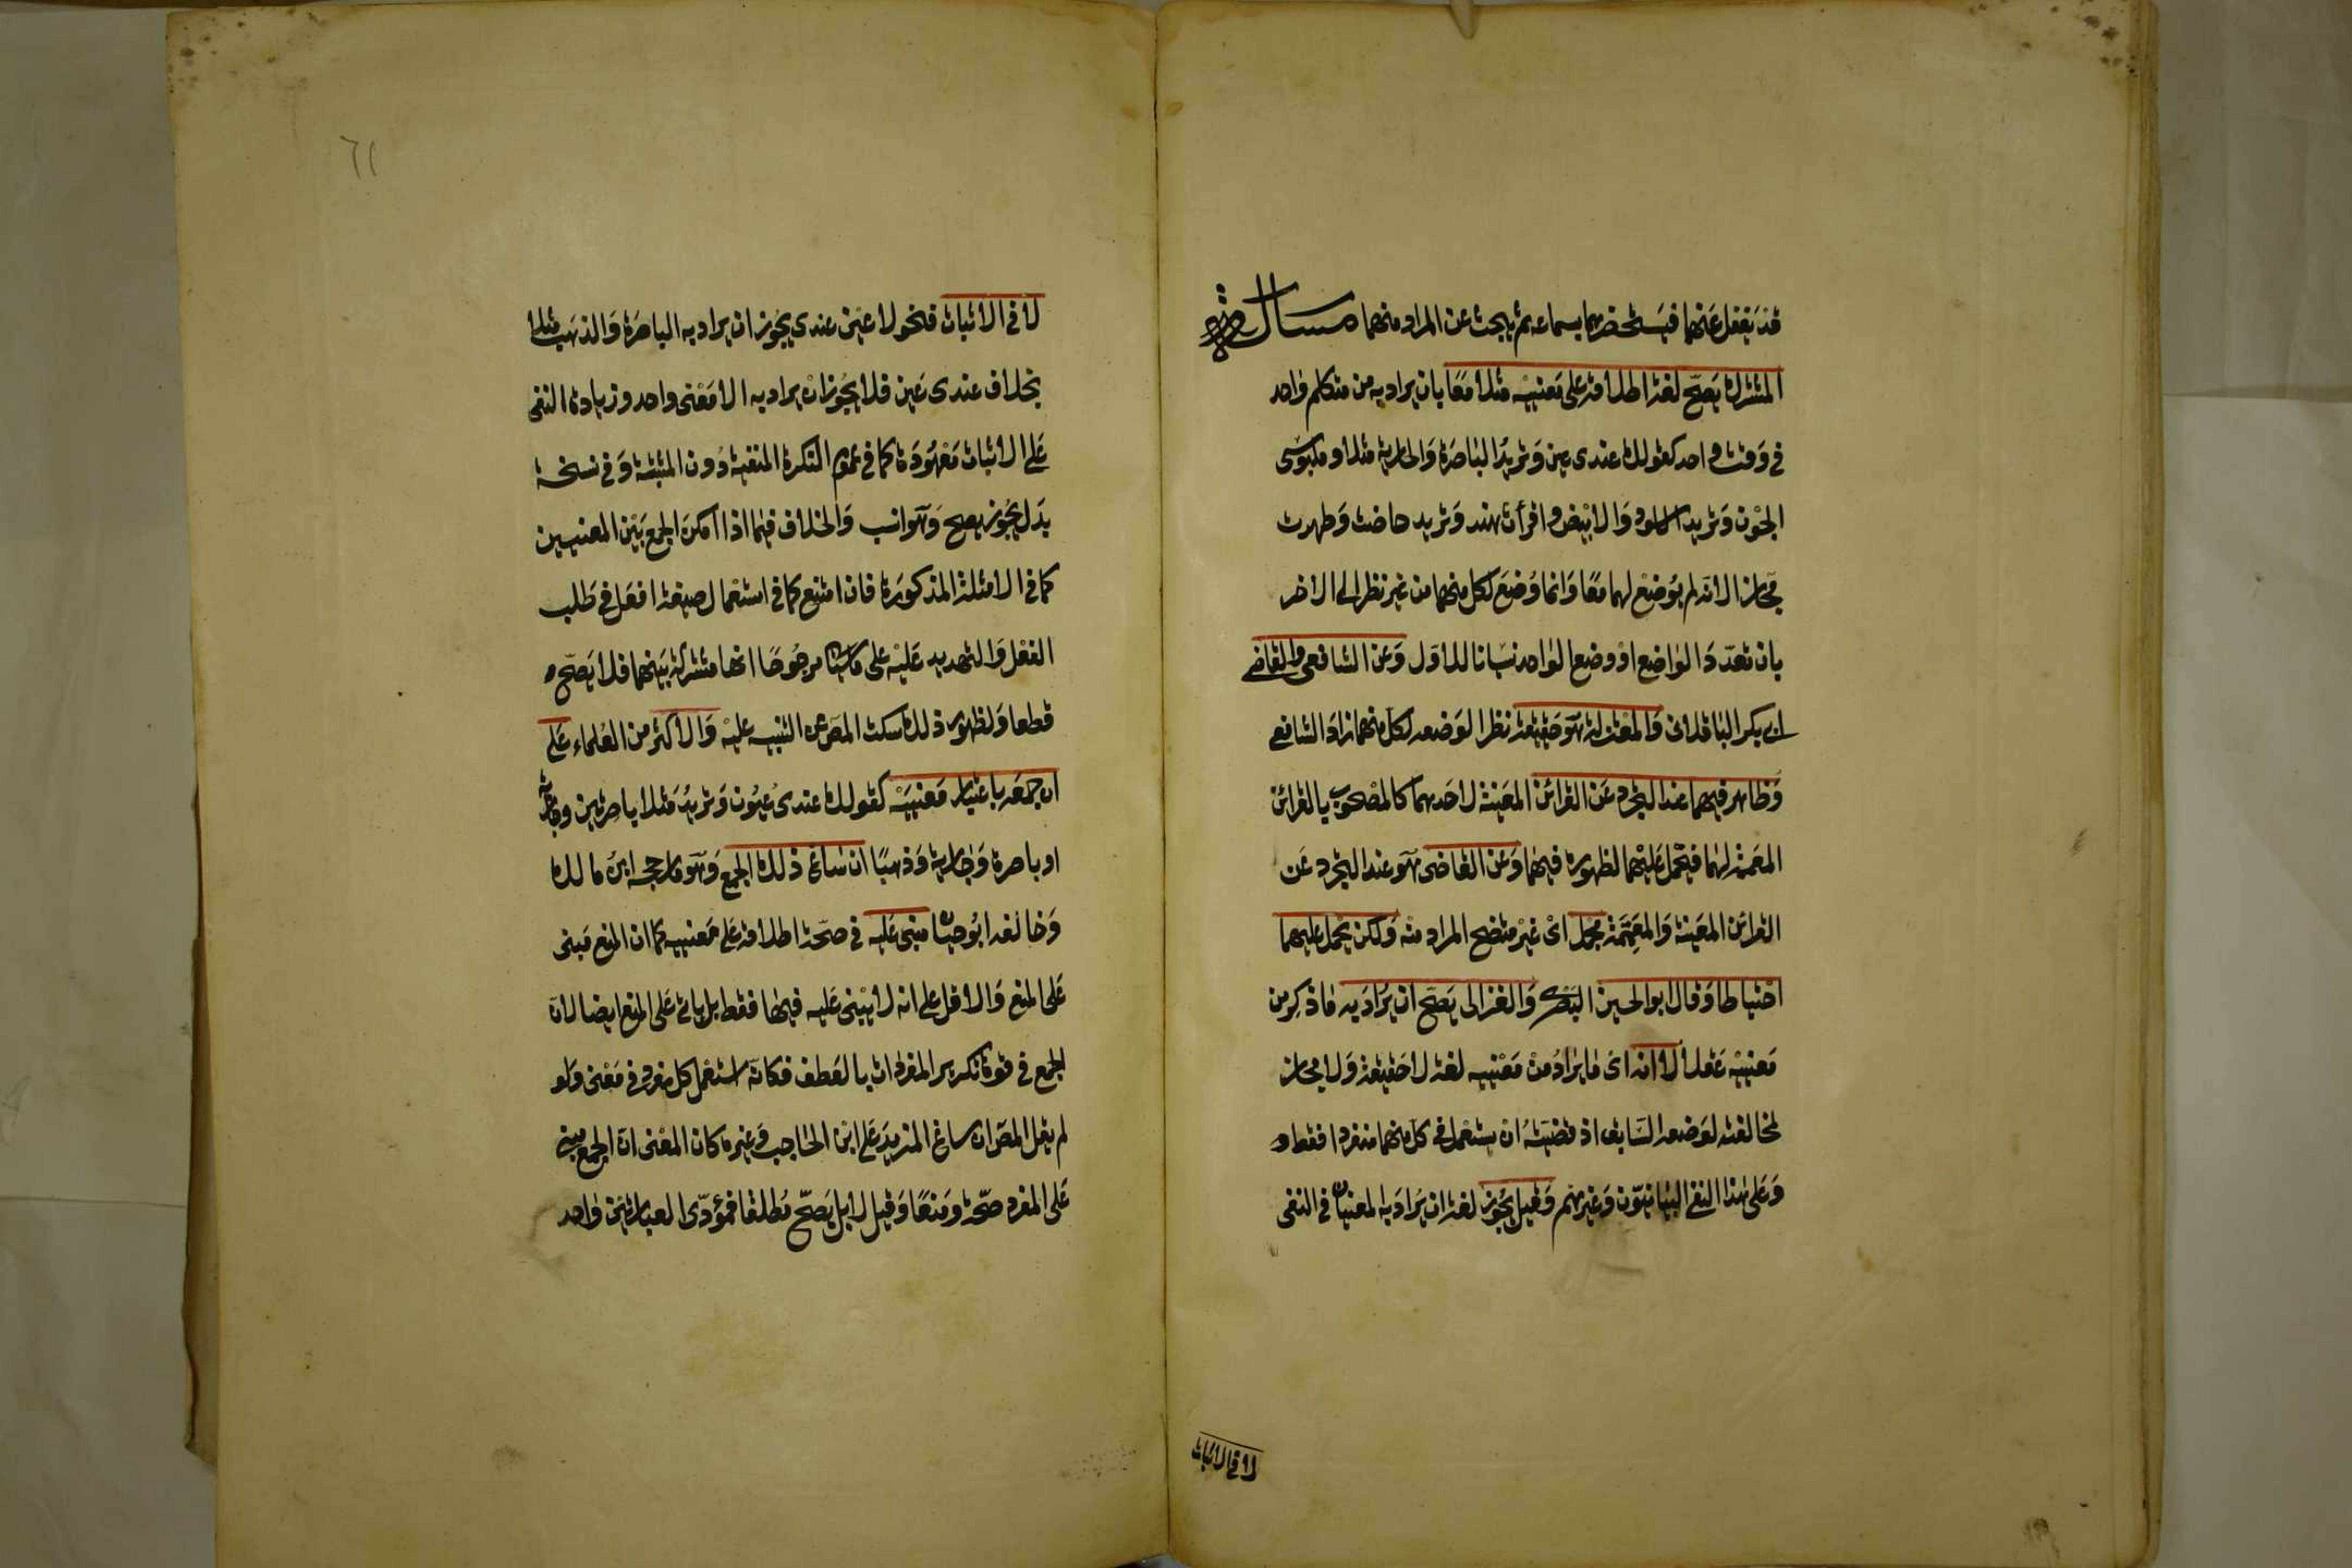 قد يغفل عنهما فيستحضرهما بسماعه ثم يبحث عن المراد منهما مسألة
المشترك يصح لغة اطلاقه على معنييه مثلا معا بان يراد به من متكلم واحد
في وقت واحد كقولك عندي عين وتريد الباصرة والجارية مثلا وملبوسي
الجون وتريد الاسود والابيض واقرأت هند وتريد حاضت وطهرت
مجازا لانه لم يوضع لهما معا وانما وضع لكل منهما من غير نظر الى الاخر
بان تعدد الواضع او وضع الواحد نسيانا للاول وعن الشافعي والقاضي
ابي بكر الباقلاني والمعتزلة هو حقيقة نظرا لوضعه لكل منهما زاد الشافعي
وظاهر فيهما عند التجرد عن القرائن المعينة لاحدهما كالمصحوب بالقرائن
المعممة لهما فيحمل عليهما لظهوره فيهما وعن القاضي هو عند التجرد عن
القرائن المعينة والمعممة مجمل اي غير متضح المراد منه ولكن يحمل عليهما
احتياطا وقال ابو الحسين البصري والغزالي يصح ان يراد به ما ذكر من
معنييه عقلا لا انه اي ما يراد من معنييه لغة لا حقيقة ولا مجازا
لمخالفته لوضعه السابق اذ قضيته ان يستعمل في كل منهما منفردا فقط و
وعلى هذا النفي البيانيون وغيرهم وقيل يجوز لغة ان يراد به المعنيان في النفي
لا في الاثبات
٦١
لا في الاثبات فنحو لا عين عندي يجوز ان يراد به الباصرة والذهب مثلا
بخلاف عندي عين فلا يجوز ان يراد به الا معنى واحد وزيادة النفي
على الاثبات معهودة كما في عموم النكرة المنفية دون المثبتة وفي نسخة
بدل يجوز يصح وهو انسب والخلاف فيما اذا امكن الجمع بين المعنيين
كما في الامثلة المذكورة فان امتنع كما في استعمال صيغة افعل في طلب
الفعل والتهديد عليه على ما سيأتي مرجوحا انها مشتركة بينهما فلا يصح
قطعا ولظهور ذلك سكت المص عن التنبيه عليه والاكثر من العلماء على
ان جمعه باعتبار معنييه كقولك عندي عيون وتريد مثلا باصرتين وجارية
او باصرة وجارية وذهبا ان ساغ ذلك الجمع وهو ما رجحه ابن مالك
وخالفه ابو حيان مبني عليه في صحة اطلاقه على معنييه كما ان المنع مبني
على المنع والاقل على انه لا يبنى عليه فيها فقط بل يأتي على المنع ايضا لان
الجمع في قوة تكرير المفردات بالعطف فكانه استعمل كل مفرد في معنى ولو
لم يقل المص ان ساغ المزيد على ابن الحاجب وغيره كان المعنى ان الجمع مبني
على المفرد صحة ومنعا وقيل لا بل يصح مطلقا فمؤدى العبارتين واحد